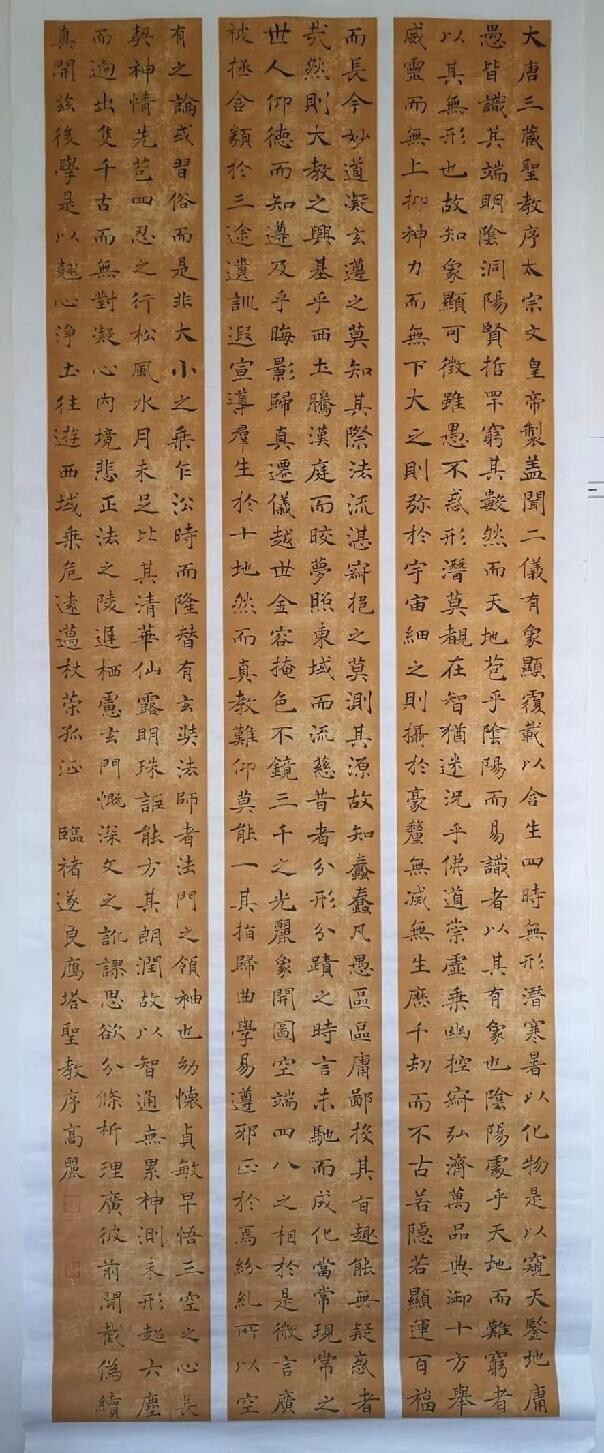 大唐三藏聖教序太宗文皇帝製盖聞二儀有象顯覆載以含生四時無形潛寒暑以化物是以窺天鑒地庸
愚皆識其端明陰洞陽賢哲罕窮其數然而天地苞乎陰陽而易識者以其有象也陰陽處乎天地而難窮者
以其無形也故知象顯可徵雖愚不惑形潛莫覩在智猶迷況乎佛道崇虛乘幽控寂弘濟萬品典御十方舉
威靈而無上抑神力而無下大之則弥於宇宙細之則攝於豪釐無滅無生歷千劫而不古若隱若顯運百福
而長今妙道凝玄遵之莫知其際法流湛寂挹之莫測其源故知蠢蠢凡愚區區庸鄙投其旨趣能無疑惑者
哉然則大教之興基乎西土騰漢庭而皎夢照東域而流慈昔者分形分蹟之時言未馳而成化當常現常之
世人仰德而知遵及乎晦影歸真遷儀越世金容掩色不鏡三千之光麗象開圖空端四八之相於是微言廣
被拯含類於三途遺訓遐宣導群生於十地然而真教難仰莫能一其指歸曲學易遵邪正於焉紛糺所以空
有之論或習俗而是非大小之乘乍沿時而隆替有玄奘法師者法門之領袖也幼懷貞敏早悟三空之心長
契神情先苞四忍之行松風水月未足比其清華仙露明珠詎能方其朗潤故以智通無累神測未形超六塵
而迥出隻千古而無對凝心內境悲正法之陵遲栖慮玄門慨深文之訛謬思欲分條析理廣彼前聞截偽續
真開茲後學是以翹心淨土往遊西域乘危遠邁杖策孤征 臨褚遂良鷹塔聖教序高麗